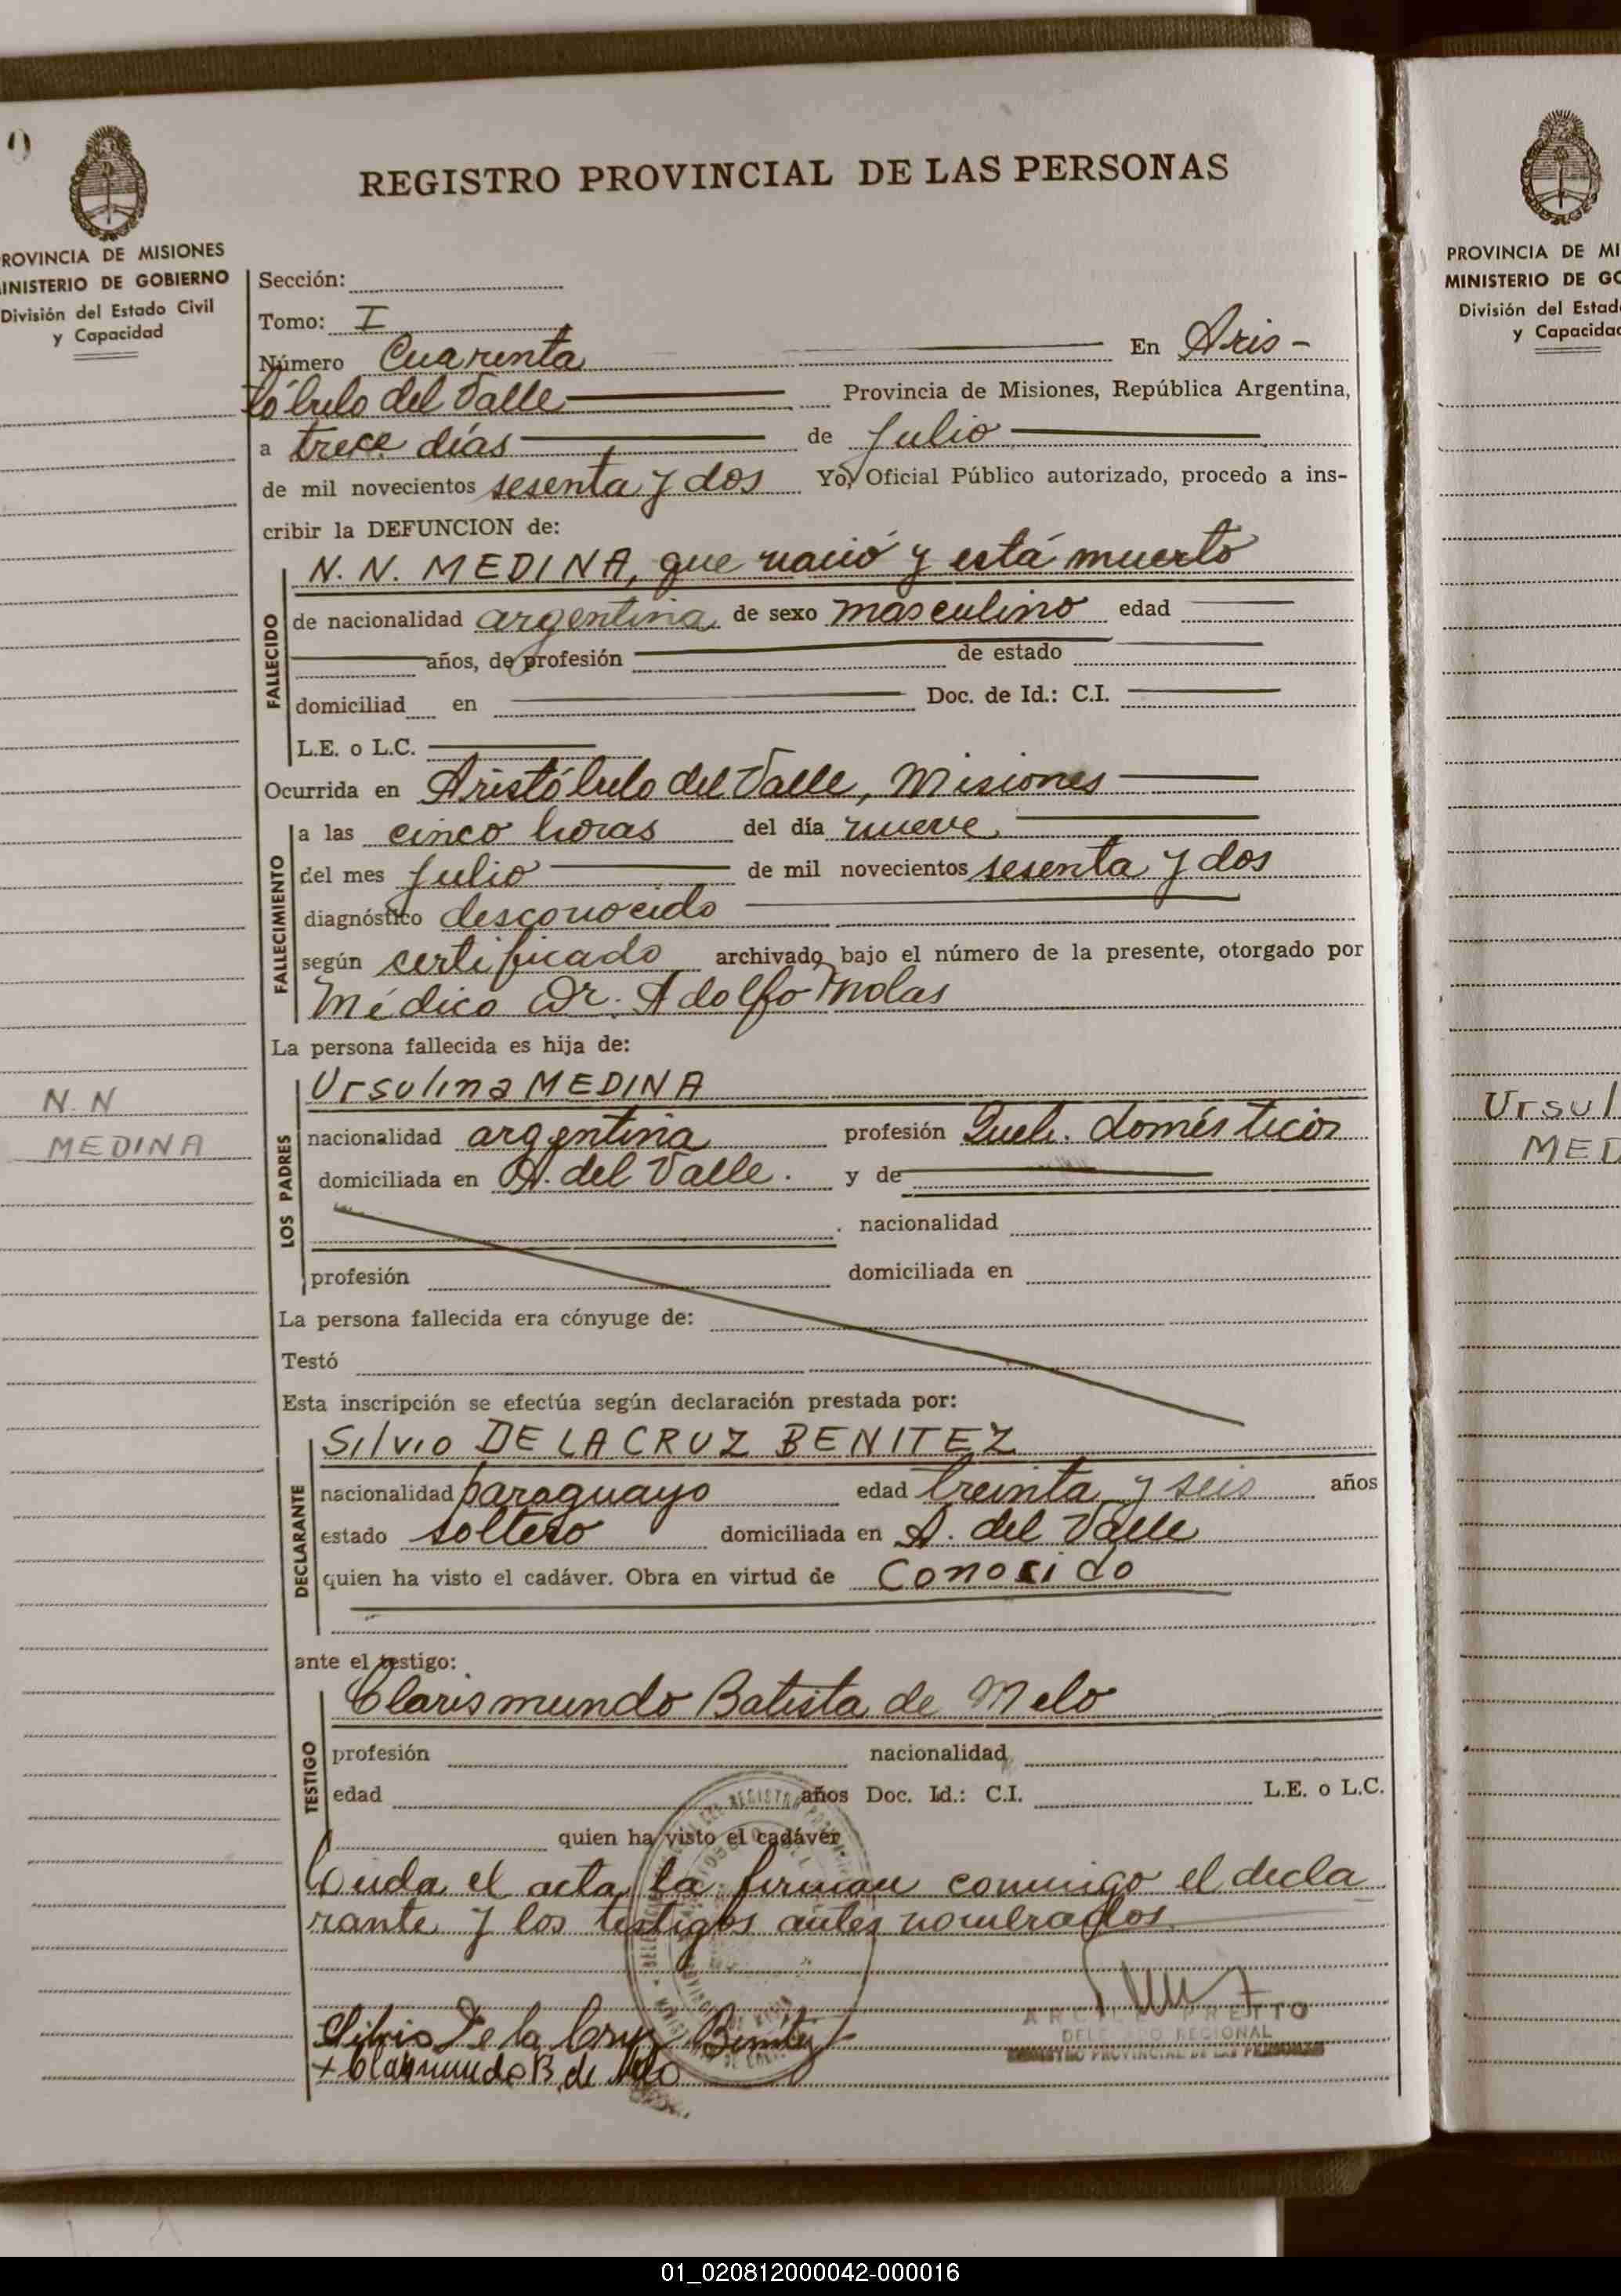 REGISTRO PROVINCIAL DE LAS PERSONAS
ROVINCIA DE MISIONES
INISTERIO DE GOBIERNO
División del Estado Civil
y Capacidad
Sección:
Tomo: I
Número Cuarenta En Aris-
tóbulo del Valle Provincia de Misiones, República Argentina,
a trece días de Julio
de mil novecientos sesenta y dos Yo, Oficial Público autorizado, procedo a ins-
cribir la DEFUNCION de:
FALLECIDO
N. N. MEDINA, que nació y está muerto
de nacionalidad argentina, de sexo masculino edad
años, de profesión de estado
domiciliad en Doc. de Id.: C.I.
L.E. o L.C.
Ocurrida en Aristóbulo del Valle, Misiones
FALLECIMIENTO
a las cinco horas del día nueve
del mes Julio de mil novecientos sesenta y dos
diagnóstico desconocido
según certificado archivado bajo el número de la presente, otorgado por
Médico Dr. Adolfo Molas
La persona fallecida es hija de:
N. N
MEDINA
LOS PADRES
Ursulina MEDINA
nacionalidad argentina profesión Queh. domésticos
domiciliada en A. del Valle. y de
nacionalidad
profesión domiciliada en
La persona fallecida era cónyuge de:
Testó
Esta inscripción se efectúa según declaración prestada por:
DECLARANTE
Silvio DE LA CRUZ BENITEZ
nacionalidad paraguayo edad treinta y seis años
estado soltero domiciliada en A. del Valle
quien ha visto el cadáver. Obra en virtud de Conocido
ante el testigo:
TESTIGO
Clarismundo Batista de Melo
profesión nacionalidad
edad años Doc. Id.: C.I. L.E. o L.C.
quien ha visto el cadáver
Leída el acta, la firman conmigo el decla
rante y los testigos antes nombrados.
Silvio De la Cruz Benitez
+ Clarismundo B. de Melo
REGIONAL
REGISTRO PROVINCIAL DE LAS PERSONAS
PROVINCIA DE MI
MINISTERIO DE GO
División del Estad
y Capacidad
Ursul
MED
01_020812000042-000016